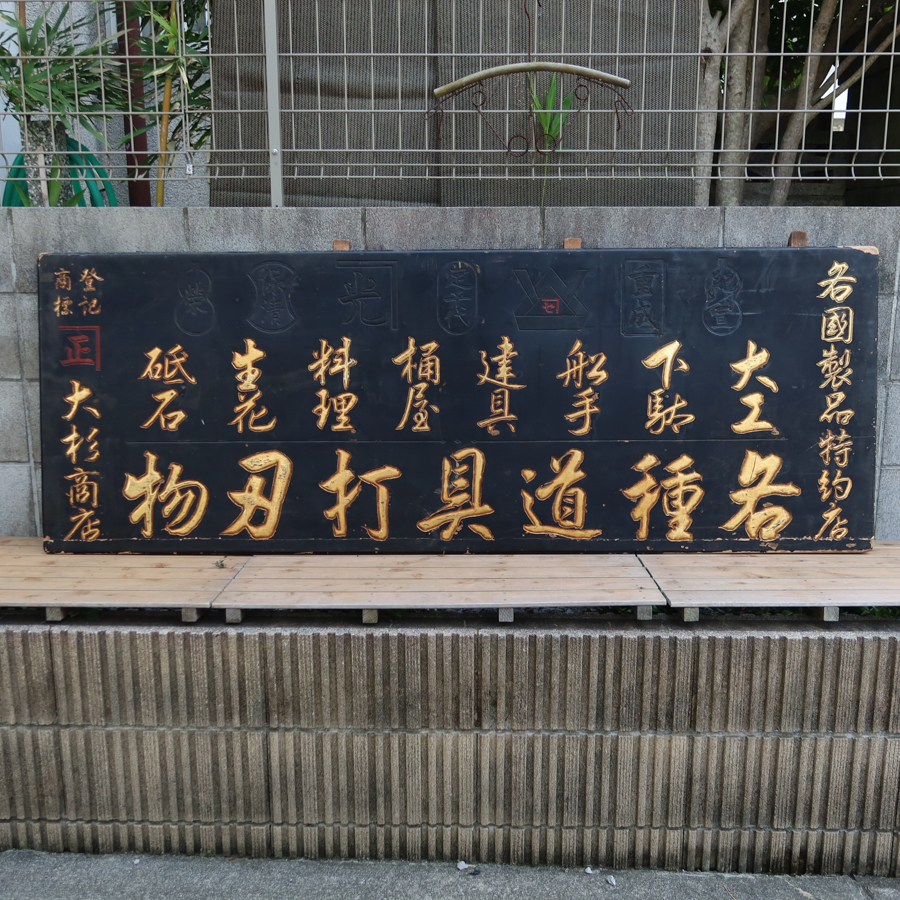 各國製品特約店
光
大工
下駄
船手
建具
桶屋
料理
生花
砥石
各種道具打刃物
登記
商標
正
大杉商店